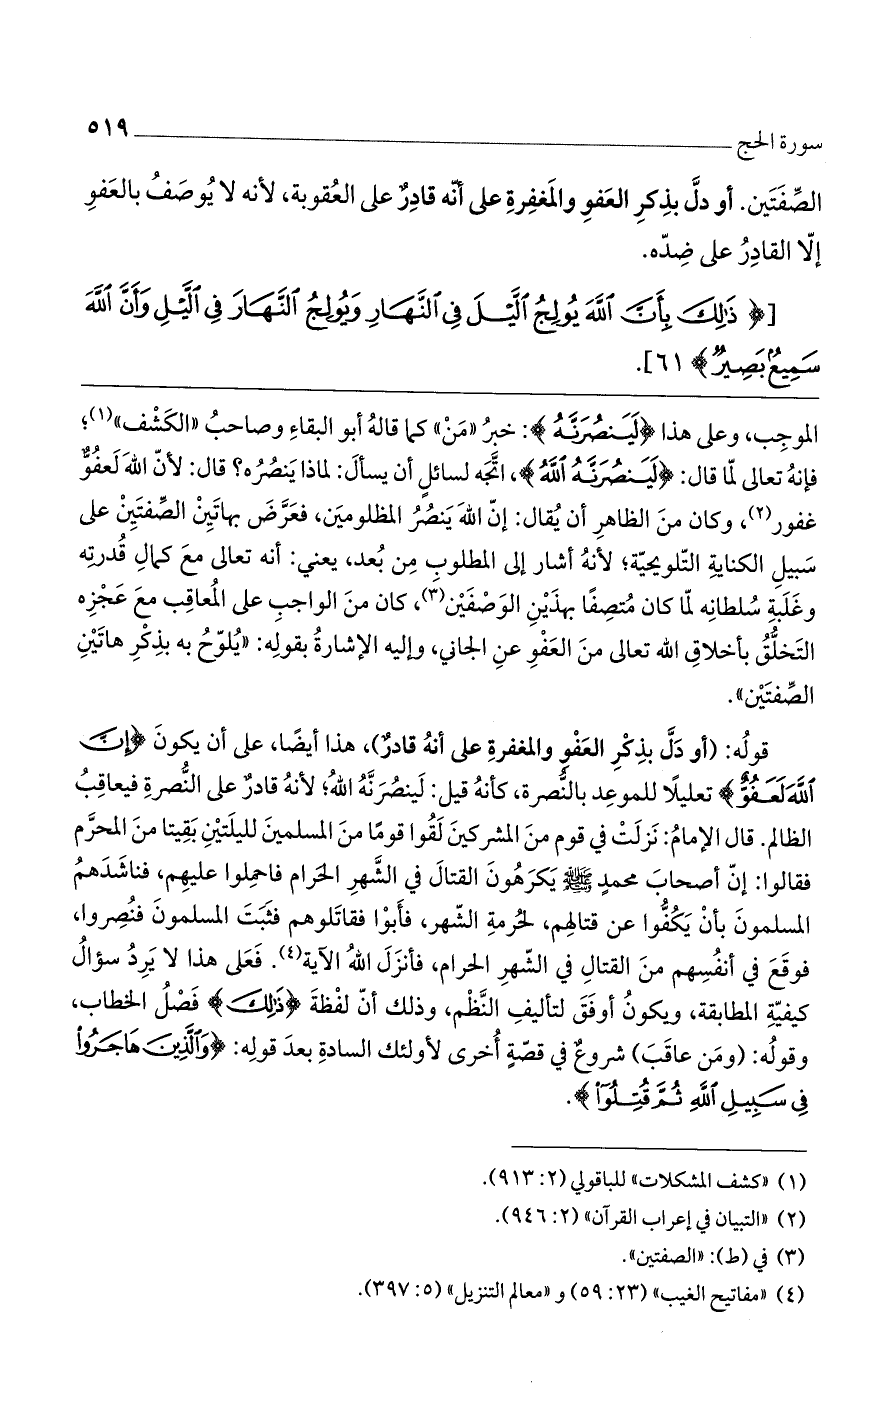 سورة الحج ٥١٩
الصِّفَتَين. أو دلَّ بذِكرِ العَفوِ والمَغفِرةِ على أنّه قادِرٌ على العُقوبة، لأنه لا يُوصَفُ بالعَفوِ
إلّا القادِرُ على ضِدّه.
[﴿ ذَٰلِكَ بِأَنَّ ٱللَّهَ يُولِجُ ٱلَّيْلَ فِى ٱلنَّهَارِ وَيُولِجُ ٱلنَّهَارَ فِى ٱلَّيْلِ وَأَنَّ ٱللَّهَ
سَمِيعٌۢ بَصِيرٌ ﴾ ٦١].
الموجِب، وعلى هذا ﴿لَيَنصُرَنَّهُ ﴾: خبرُ «مَنْ» كما قالهُ أبو البقاءِ وصاحبُ «الكَشْف»(١)؛
فإنهُ تعالى لمّا قال: ﴿لَيَنصُرَنَّهُ ٱللَّهُ ﴾، اتَّجه لسائلٍ أن يسألَ: لماذا يَنصُرُه؟ قال: لأنّ اللهَ لَعفُوٌّ
غفور(٢)، وكان منَ الظاهرِ أن يُقال: إنّ اللهَ يَنصُرُ المظلومينَ، فعَرَّضَ بهاتَيْنِ الصِّفتَيْنِ على
سَبيلِ الكنايةِ التّلويحيّة؛ لأنهُ أشار إلى المطلوبِ مِن بُعد، يعني: أنه تعالى معَ كمالِ قُدرتِه
وغَلَبةِ سُلطانِه لمّا كان مُتصِفًا بهذَيْنِ الوَصْفَيْن(٣)، كان منَ الواجبِ على المُعاقِب معَ عَجْزِه
التَخلُّقُ بأخلاقِ الله تعالى منَ العَفْوِ عنِ الجاني، وإليه الإشارةُ بقولِه: «يُلوّحُ به بذِكْرِ هاتَيْنِ
الصِّفتَيْن».
قولُه: (أو دَلَّ بذِكْرِ العَفْوِ والمغفرةِ على أنهُ قادرٌ)، هذا أيضًا، على أن يكونَ ﴿إِنَّ
ٱللَّهَ لَعَفُوٌّ ﴾ تعليلًا للموعِد بالنُّصرة، كأنهُ قيل: لَينصُرَنَّهُ اللهُ؛ لأنهُ قادرٌ على النُّصرةِ فيعاقِبُ
الظالم. قال الإمامُ: نَزلَتْ في قوم منَ المشركينَ لَقُوا قومًا منَ المسلمينَ لليلَتَيْنِ بَقِيتا منَ المحرَّم
فقالوا: إنّ أصحابَ محمدٍ ﷺ يَكرَهُونَ القتالَ في الشَّهرِ الحَرام فاحمِلوا عليهم، فناشَدَهمُ
المسلمونَ بأنْ يَكفُّوا عن قتالِهم، لحُرمةِ الشّهر، فأَبَوْا فقاتَلوهم فثَبَتَ المسلمونَ فنُصِروا،
فوقَعَ في أنفُسِهم منَ القتالِ في الشّهرِ الحرام، فأنزَلَ اللهُ الآية(٤). فَعَلى هذا لا يَرِدُ سؤالُ
كيفيّةِ المطابقة، ويكونُ أوفَقَ لتأليفِ النَّظْم، وذلك أنّ لفْظةَ ﴿ذَٰلِكَ ﴾ فَصْلُ الخطاب،
وقولُه: (ومَن عاقَبَ) شروعٌ في قصّةٍ أُخرى لأولئك السادةِ بعدَ قولِه: ﴿وَٱلَّذِينَ هَاجَرُوا۟
فِى سَبِيلِ ٱللَّهِ ثُمَّ قُتِلُوٓا۟ ﴾.
(١) «كشف المشكلات» للباقولي (٢: ٩١٣).
(٢) «التبيان في إعراب القرآن» (٢: ٩٤٦).
(٣) في (ط): «الصفتين».
(٤) «مفاتيح الغيب» (٢٣: ٥٩) و «معالم التنزيل» (٥: ٣٩٧).